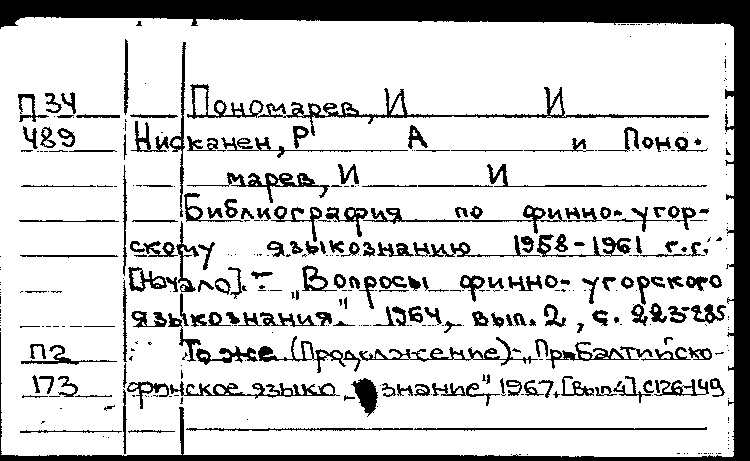 П34 Пономарев, И И
489 Нисканен, Р А и Поно-
марев, И И
Библиография по финно-угор-
скому языкознанию 1958-1961 г.г.
[Начало]. - "Вопросы финно-угорского
языкознания." 1964, вып. 2, с. 223-285
П2 То же (Продолжение)-"Прибалтийско-
173 финское языко знание", 1967, [Вып4], с126-149